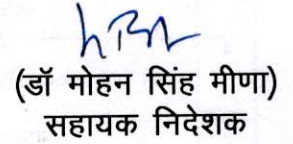 (डॉ मोहन सिंह मीणा)
सहायक निदेशक